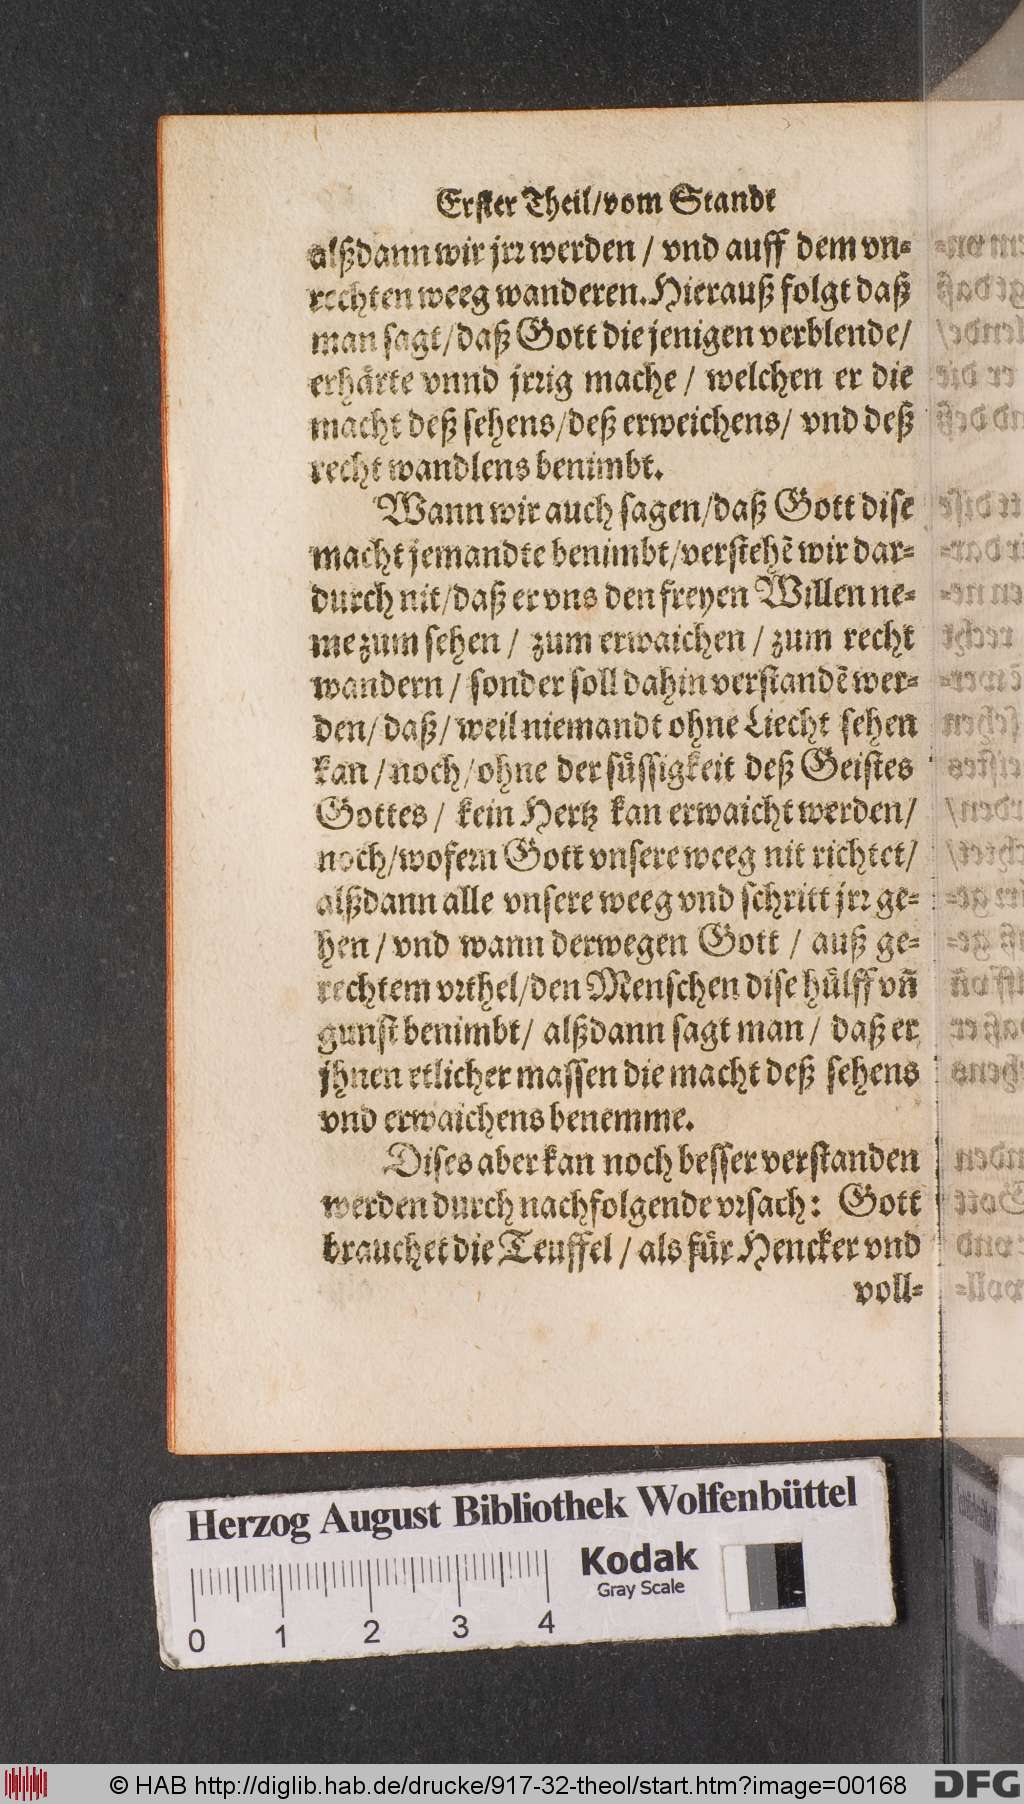 Erster Theil/vom Standt
alßdann wir jrr werden / vnd auff dem vn⸗
rechten weeg wanderen. Hierauß folgt daß
man sagt/daß Gott die jenigen verblende/
erhärte vnnd jrrig mache / welchen er die
macht deß sehens/deß erweichens/ vnd deß
recht wandlens benimbt.
Wann wir auch sagen/daß Gott dise
macht jemandte benimbt/verstehẽ wir dar⸗
durch nit/daß er vns den freyen Willen ne⸗
me zum sehen / zum erwaichen / zum recht
wandern / sonder soll dahin verstandẽ wer⸗
den/daß/ weil niemandt ohne Liecht sehen
kan /noch/ohne der süssigkeit deß Geistes
Gottes / kein Hertz kan erwaicht werden/
noch/wofern Gott vnsere weeg nit richtet/
alßdann alle vnsere weeg vnd schritt jrr ge⸗
hen / vnd wann derwegen Gott / auß ge⸗
rechtem vrthel/den Menschen dise hülff vñ
gunst benimbt/ alßdann sagt man / daß er
jhnen etlicher massen die macht deß sehens
vnd erwaichens benemme.
Dises aber kan noch besser verstanden
werden durch nachfolgende vrsach: Gott
brauchet die Teuffel / als für Hencker vnd
voll⸗
Herzog August Bibliothek Wolfenbüttel
Kodak
Gray Scale
0 1 2 3 4
© HAB http://diglib.hab.de/drucke/917-32-theol/start.htm?image=00168
DFG